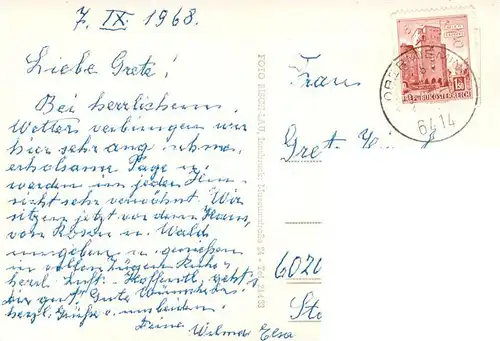 7. IX. 1968.
Liebe Grete!
Bei herrlichem
Wetter verbringen wir
hier sehr angenehme,
erholsame Tage u.
werden in jeder Hin-
sicht sehr verwöhnt. Wir
sitzen jetzt vor dem Haus,
von Rosen u. Wald
umgeben u. genießen
in vollen Zügen Ruhe u.
herrl. Luft. Hoffentl. geht's
Dir gut! Gute Wünsche u.
herzl. Grüße v. uns beiden.
Deine
Wilma Elsa
FOTO Innsbruck, Museumstraße 24 - Tel.
REPUBLIK ÖSTERREICH
6414
Frau
Gret.
6020
St